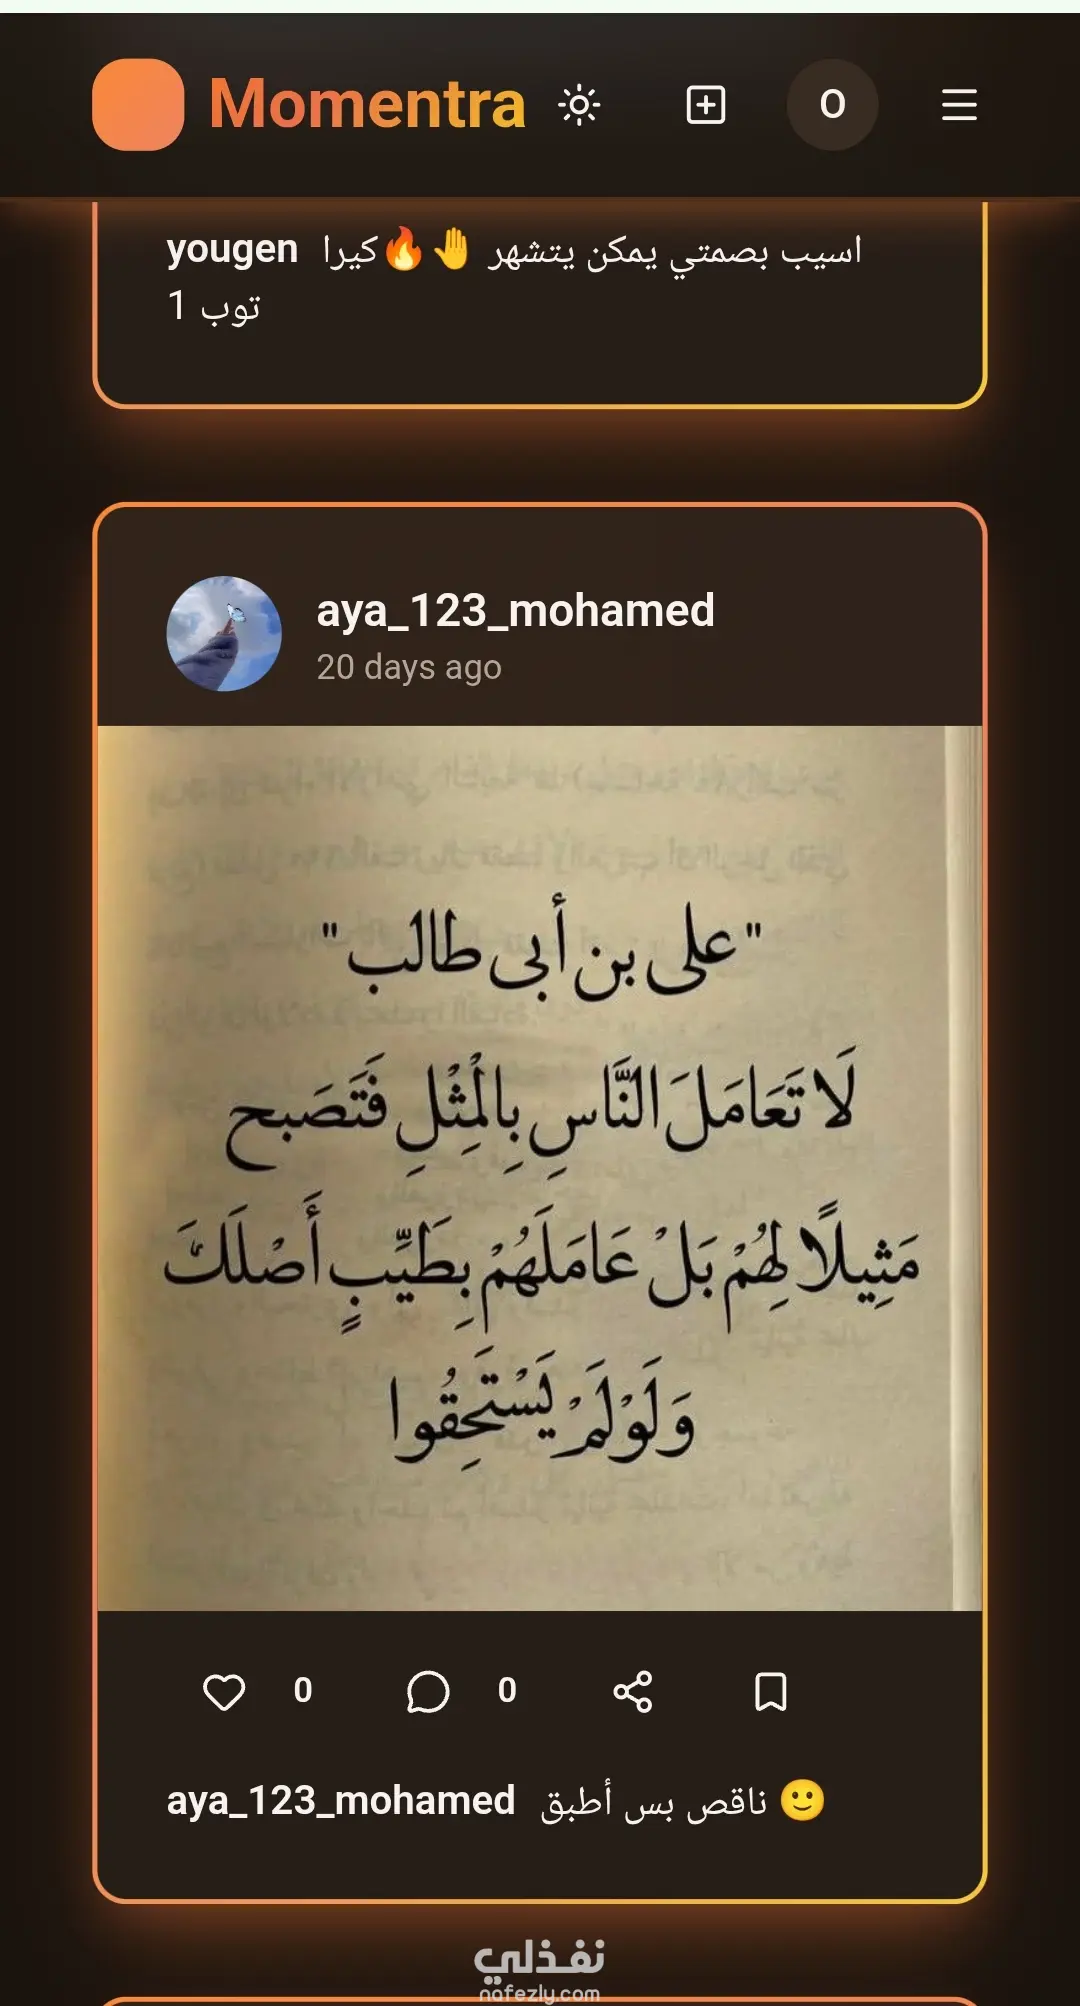 Momentra
O
yougen اسيب بصمتي يمكن يتشهر 🤚🔥كيرا
توب 1
aya_123_mohamed
20 days ago
"على بن أبى طالب"
لَا تَعَامَلَ النَّاسِ بِالْمِثْلِ فَتَصَبح
مَثِيلًا لِهُمْ بَلْ عَامَلَهُمْ بِطَيِّبٍ أَصْلَكَ
وَلَوْلَمْ يَسْتَحِقُوا
0 0
aya_123_mohamed ناقص بس أطبق 🙂
نفذلي
nafezly.com